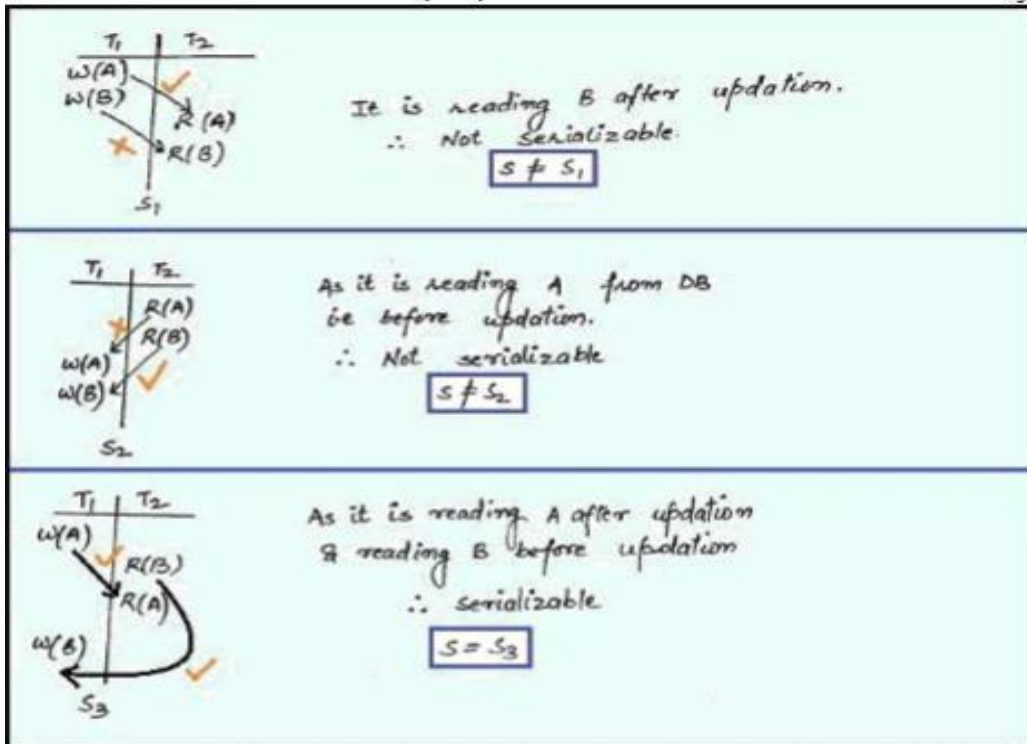 T1 | T2
W(A)
W(B)
R(A)
R(B)
S1
It is reading B after updation.
∴ Not serializable.
S ≠ S1
T1 | T2
R(A)
R(B)
W(A)
W(B)
S2
As it is reading A from DB
ie before updation.
∴ Not serializable
S ≠ S2
T1 | T2
W(A)
R(B)
R(A)
W(B)
S3
As it is reading A after updation
& reading B before updation
∴ serializable
S = S3